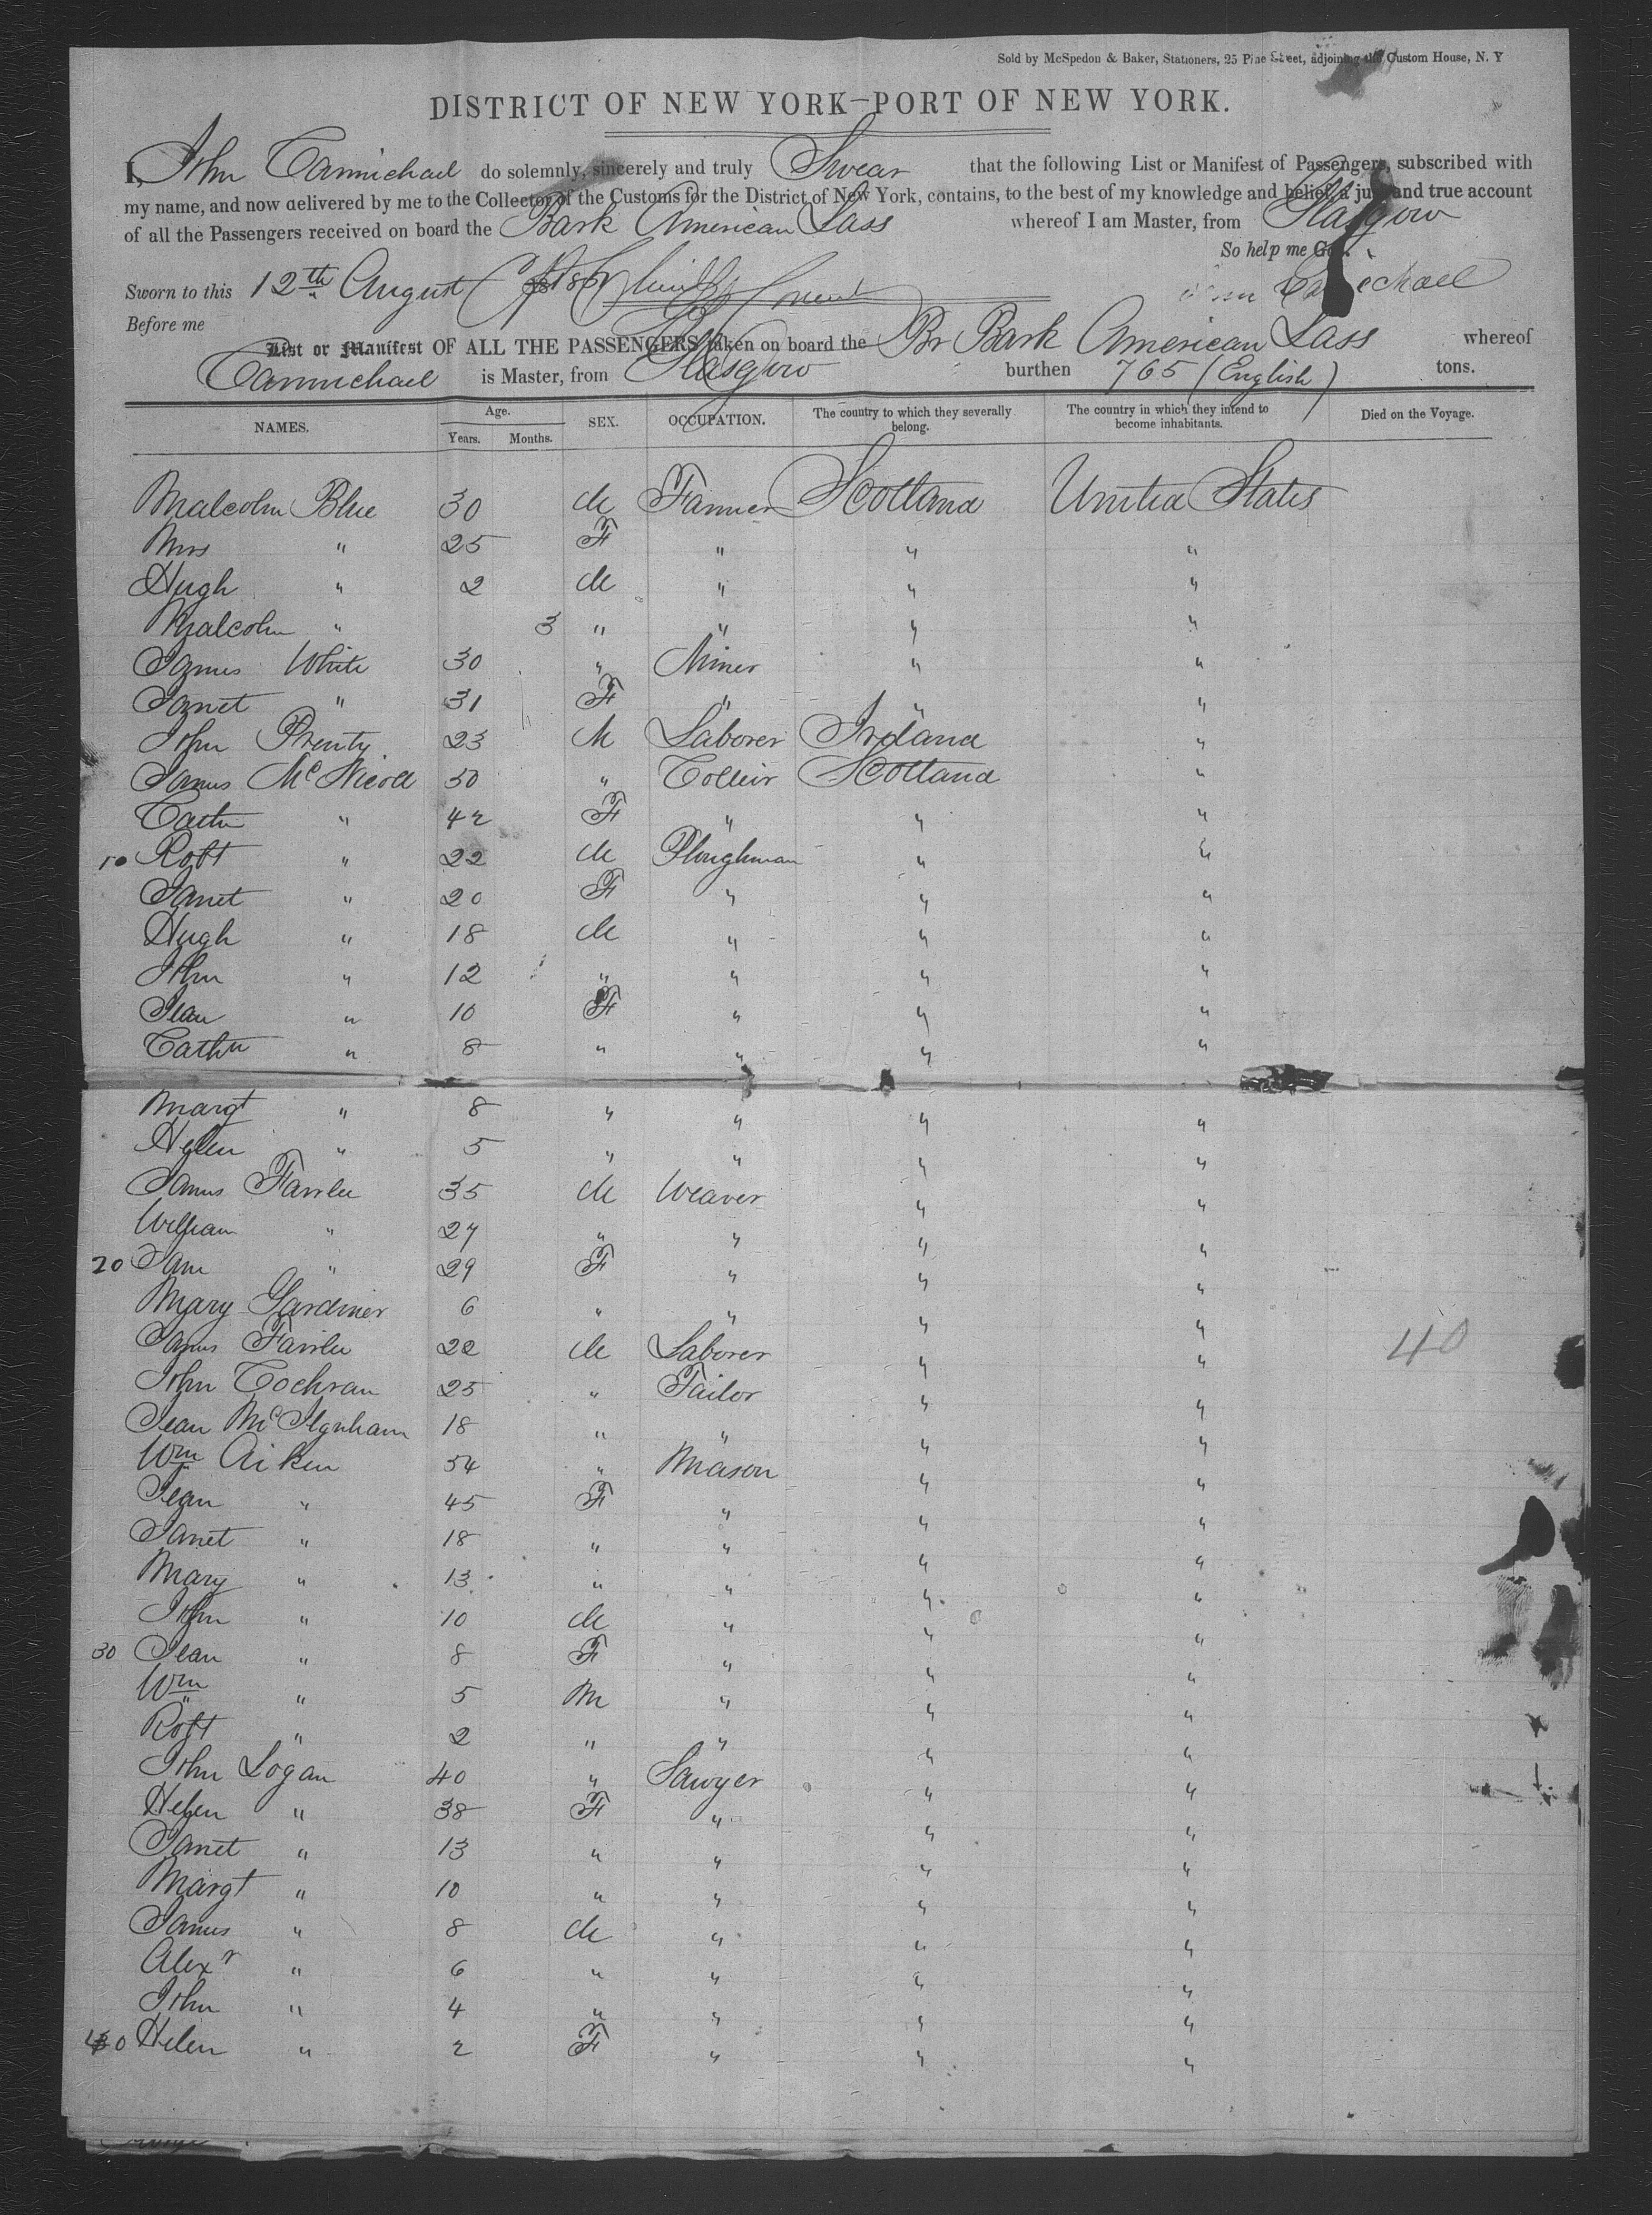 Sold by McSpedon & Baker, Stationers, 25 Pine Street, adjoining the Custom House, N. Y
DISTRICT OF NEW YORK—PORT OF NEW YORK.
I, John Carmichael do solemnly, sincerely and truly Swear that the following List or Manifest of Passengers, subscribed with
my name, and now delivered by me to the Collector of the Customs for the District of New York, contains, to the best of my knowledge and belief, a just and true account
of all the Passengers received on board the Bark American Lass whereof I am Master, from Glasgow
So help me God.
Sworn to this 12th August Carmichael
Before me
List or Manifest OF ALL THE PASSENGERS taken on board the Br Bark American Lass whereof
Carmichael is Master, from Glasgow burthen 765 (English) tons.
NAMES. Age. SEX. OCCUPATION. The country to which they severally belong. The country in which they intend to become inhabitants. Died on the Voyage.
Years. Months.
Malcolm Blue 30 M Farmer Scotland United States
Mrs " 25 F " " "
Hugh " 2 M " " "
Malcolm " 3 " " " "
James White 30 " Miner " "
Janet " 31 F " " "
John Prenty 23 M Laborer Ireland "
James McNicoll 50 " Collier Scotland "
Cathn " 42 F " " "
10 Robt " 22 M Ploughman " "
Janet " 20 F " " "
Hugh " 18 M " " "
John " 12 " " " "
Jean " 10 F " " "
Cathn " 8 " " " "
Margt " 8 " " " "
Helen " 5 " " " "
James Fairlee 35 M Weaver " "
William " 27 " " " "
20 Jane " 29 F " " "
Mary Gardiner 6 " " " "
James Fairlee 22 M Laborer " "
40
John Cochran 25 " Tailor " "
Jean 18 " " " "
Wm Aiken 54 " Mason " "
Jean " 45 F " " "
Janet " 18 " " " "
Mary " 13 " " " "
John " 10 M " " "
30 Jean " 8 F " " "
Wm " 5 M " " "
Robt " 2 " " " "
John Logan 40 " Sawyer " "
Helen " 38 F " " "
Janet " 13 " " " "
Margt " 10 " " " "
James " 8 M " " "
Alexr " 6 " " " "
John " 4 " " " "
40 Helen " 2 F " " "